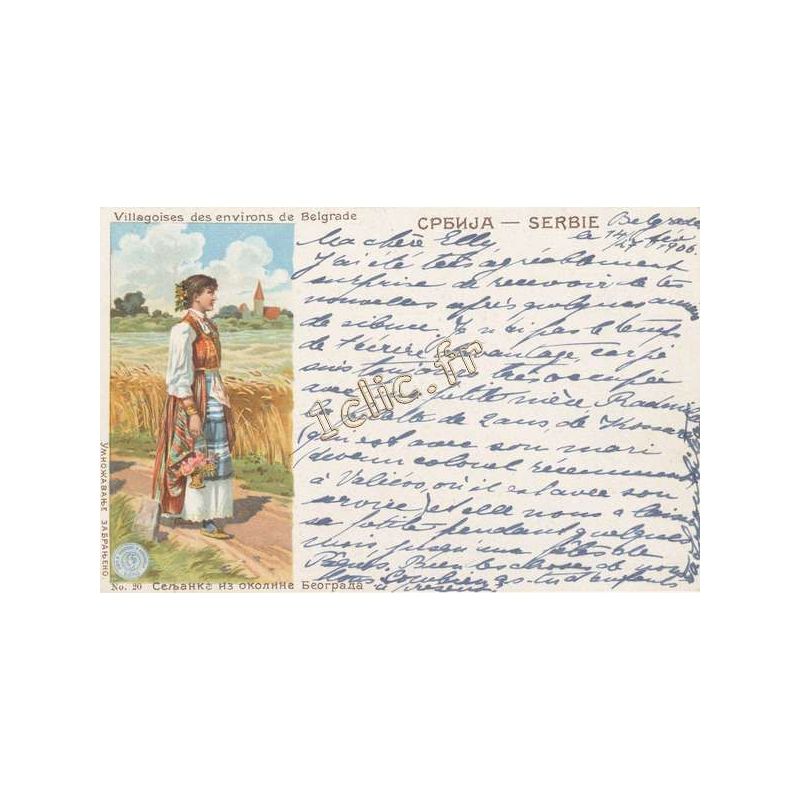 Villagoises des environs de Belgrade
СРБИЈА — SERBIE
Belgrade
le 14/27 fév 1906.
Ma chère Elly
J'ai été très agréablement
surprise de recevoir de tes
nouvelles après quelques années
de silence. Je n'ai pas le temps
de t'écrire davantage, car je
suis toujours très occupée
avec petite nièce
de 2 ans de
(qui est avec son mari
devenu colonel récemment
à Valiévo, où il est avec son
service) et elle nous a laissé
sa petite pendant quelques
mois jusqu'aux fêtes de
Pâques. Bien des choses de nous
tous. Combien as-tu d'enfants
à présent
1clic.fr
УМНОЖАВАЊЕ ЗАБРАЊЕНО.
No. 20 Сељанке из околине Београда